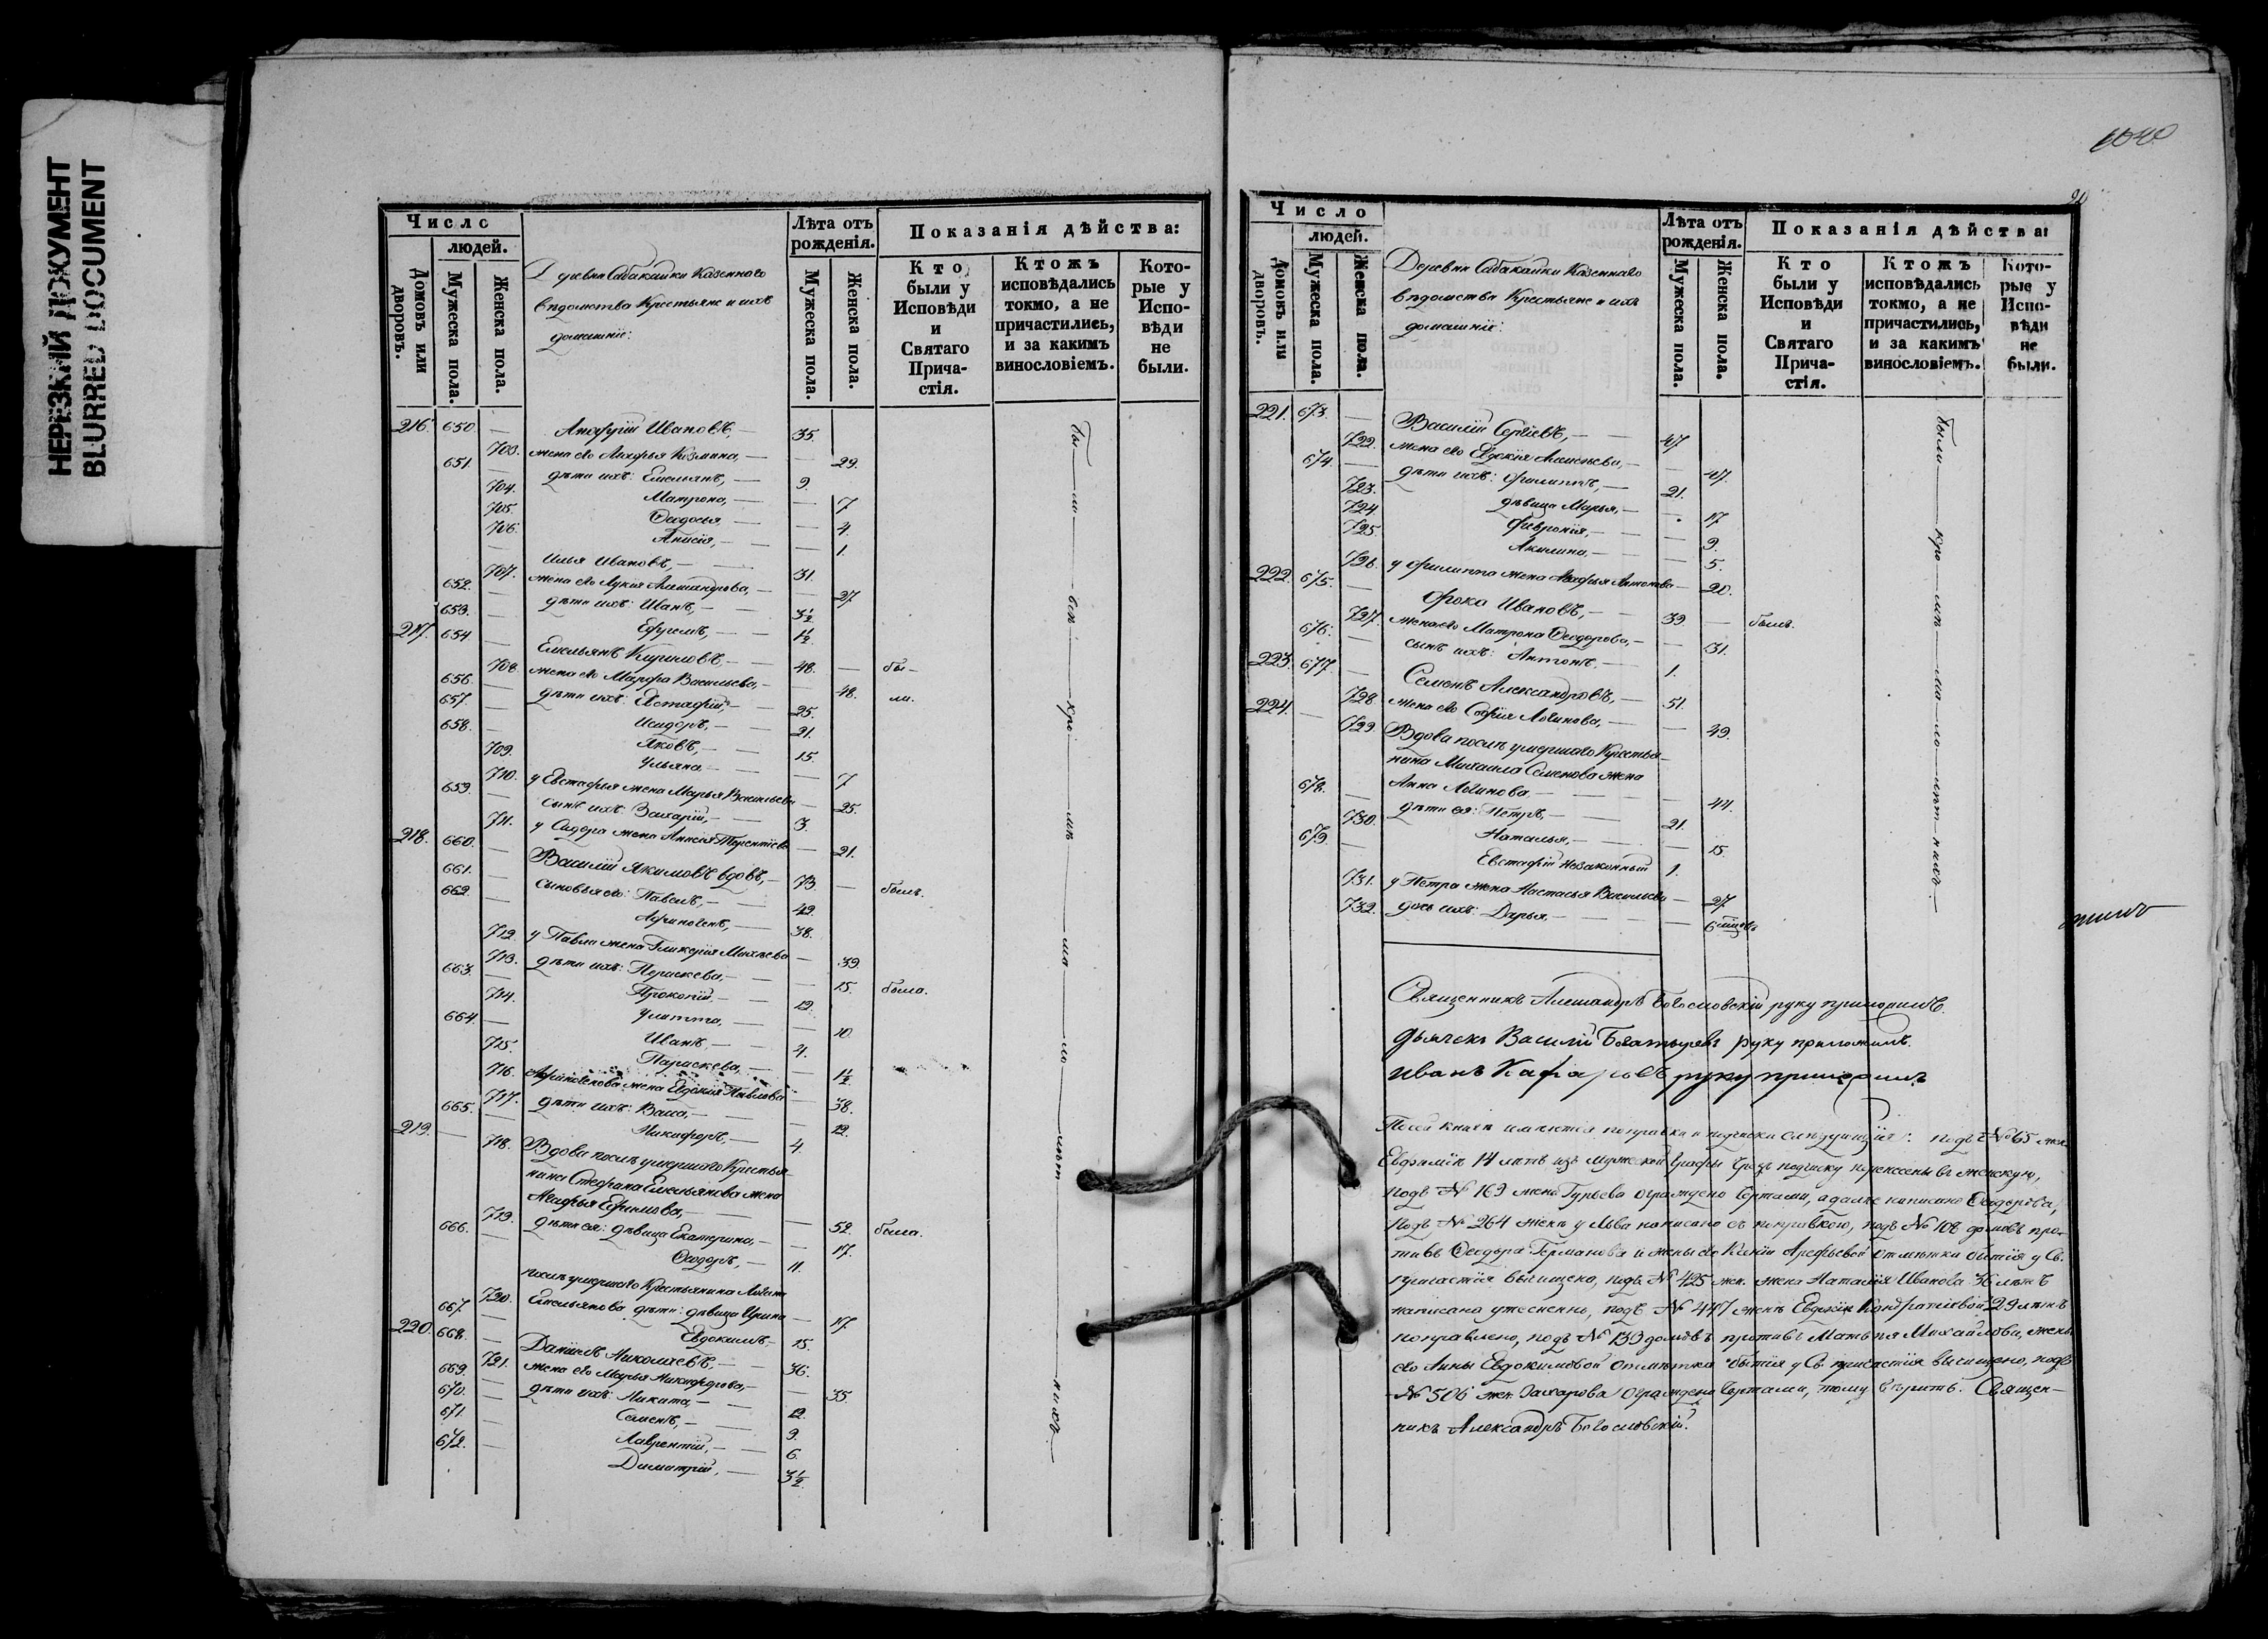 НЕРЕЗКИЙ ДОКУМЕНТ
BLURRED DOCUMENT
Число
людей.
Домовъ или дворовъ.
Мужеска пола.
Женска пола.
Деревни Сабакайки Казеннаго
вѣдомства Крестьяне и ихъ
домашніе:
Лѣта отъ рожденія.
Мужеска пола.
Женска пола.
Показанія дѣйства:
Кто были у Исповѣди и Святаго Прича-стія.
Ктожъ исповѣдались токмо, а не причастились, и за какимъ винословіемъ.
Кото-рые у Испо-вѣди не были.
216. 650. — Ивановъ, — 35.
703. жена его Агафья Козмина, — 29.
651. — дѣти ихъ: Емельянъ, — 9.
704. Матрона, — 7
705. Ѳеодосья — 4.
706. Анисія, — 1.
Илья Ивановъ, — 31.
707. жена его Лукія Александрова, — 27
652. — дѣти ихъ: Иванъ, — 3½
653. — Ефремъ, — 1½
217. 654 — Емельянъ Кириловъ, — 48. — бы-
708. жена его Марфа Васильева, — 48. ли.
656. — дѣти ихъ: Евстафій, — 25.
657. — Исидоръ, — 21.
658. — Яковъ, — 15.
709. Ульяна — 7
710. у Евстафья жена Марья Васильева — 25.
659. — сынъ ихъ Захарій, — 3.
711. у Сидора жена Анисія Терентіева — 21.
218. 660. — Василій Якимовъ вдовъ, — 73. — былъ.
661. — сыновья его: Павелъ, — 42.
662. — Афиногенъ, — 38.
712. у Павла жена Гликерія Михѣева — 39
713. дѣти ихъ: Пераскева, — 15. была.
663. — Прокопій — 12.
714. Улитта, — 10
664. — Иванъ, — 4.
715. Параскева, — 1½
716. Афиногенова жена Евдокія Павлова — 38.
717. дѣти ихъ: Васса, — 12.
665. — Никифоръ, — 4.
219. — 718. Вдова послѣ умершаго Крестья-
нина Стефана Емельянова жена
Агафья Ефимова, — 52. была.
719. дѣти ея: дѣвица Екатерина, — 17.
666. — Ѳеодоръ, — 11.
послѣ умершаго Крестьянина
720. Емельянова дѣти: дѣвица Ирина — 17
667 — Евдокимъ, — 15.
220. 668. — Даніилъ Николаевъ, — 36.
721. жена его Марья Никифорова, — 35.
669. — дѣти ихъ: Никита, — 12.
670. — Семенъ, — 9.
671. — Лаврентій, — 6
672. — Димитрій, — 3½
бы—ли—всѣ—кро—мѣ—ма—ло—лѣт—нихъ.
20
Число
людей.
Домовъ или дворовъ.
Мужеска пола.
Женска пола.
Деревни Сабакайки Казеннаго
вѣдомства Крестьяне и ихъ
домашніе:
Лѣта отъ рожденія.
Мужеска пола.
Женска пола.
Показанія дѣйства:
Кто были у Исповѣди и Святаго Прича-стія.
Ктожъ исповѣдались токмо, а не причастились, и за какимъ винословіемъ.
Кото-рые у Испо-вѣди не были.
221. 673. — Василій Сергіевъ, — 47
722. жена его Евдокія Алексѣева, — 47.
674. — дѣти ихъ: Филиппъ, — 21.
723. дѣвица Марья, — 17
724. Февронія, — 9.
725. Акилина, — 5.
726. у Филиппа жена Агафья Антонова — 20.
222. 675. — Фока Ивановъ, — 39 — былъ.
727. жена его Матрона Ѳеодорова, — 31.
676. — сынъ ихъ: Антонъ. — 1.
223. 677. — Семенъ Александровъ, — 51.
728. жена его Софія Логинова, — 49.
224. — 729. Вдова послѣ умершаго Крестья-
нина Михаила Семенова жена
Анна Логинова — 44.
678. — дѣти ея: Петръ, — 21.
730. Наталья, — 15.
679. — Евстафій незаконный 1.
731. у Петра жена Настасья Васильева — 27
732. дочь ихъ: Дарья. — 6 мѣся.
были—кро—мѣ—ма—ло—лѣт—нихъ.
Священникъ Александръ Богословскій руку приложилъ.
дьячекъ Василій Богатыревъ руку приложилъ.
Иванъ руку приложилъ
Въ сей книгѣ имѣются поправки и подчистки слѣдующія: подъ № 65 жен.
Евфимія 14 лѣтъ изъ мужской графы чрезъ подчистку перенесены въ женскую,
подъ № 169 жена Гурьева ограждено чертами, а далѣе написано Ѳеодорова,
подъ № 264 жен. у Льва написано съ поправкою, подъ № 108 домовъ про-
тивъ Ѳеодора Германова и жены его Ксеніи Арефьевой отмѣтки бытія у Св.
причастія вычищено, подъ № 425 жен. жена Наталія Иванова 36 лѣтъ
написано утѣсненно, подъ № 447 женъ Евдокіи Кондратіевой 29 лѣтъ
поправлено, подъ № 139 домовъ противъ Матвѣя Михайлова, жены
его Анны Евдокимовой отмѣтка бытія у Св. причастія вычищено, подъ
№ 506 жен. Захарова ограждено чертами, тому вѣрить. Священ-
никъ Александръ Богословскій.